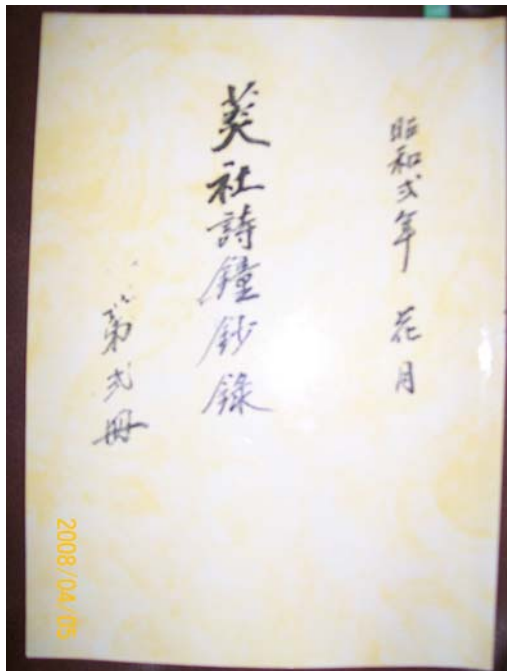 昭和弍年 花月
菼社詩鐘鈔錄
第弍冊
2008/04/05